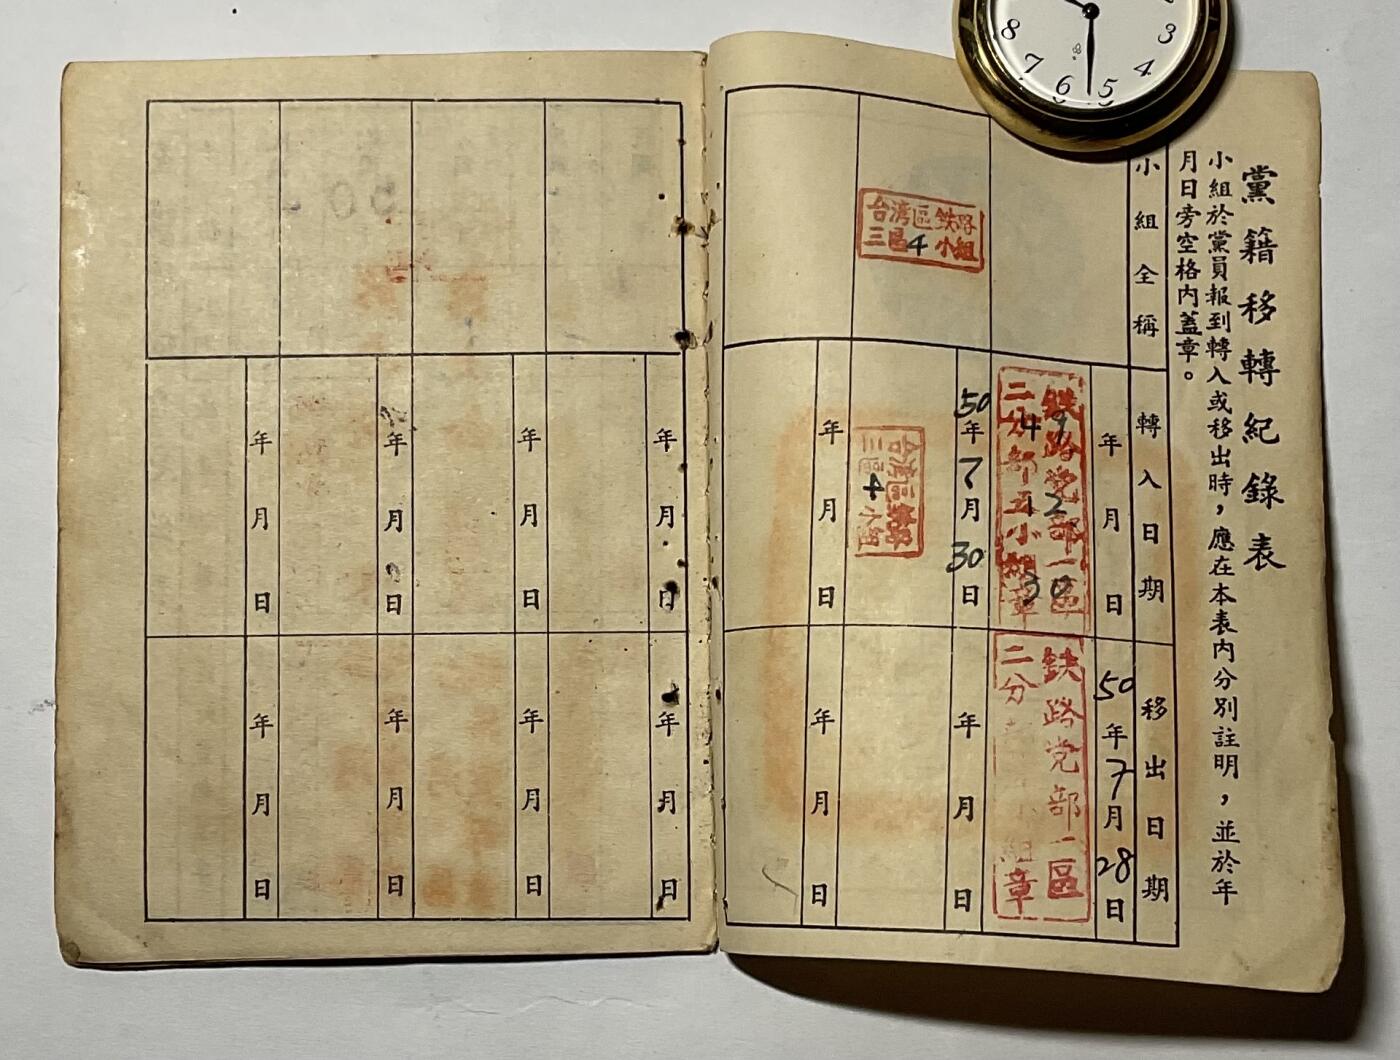 黨籍移轉紀錄表
小組於黨員報到轉入或移出時，應在本表內分別註明，並於年
月日旁空格內蓋章。
小組全稱
轉入日期
移出日期
年月日
49
12
30
鉄路党部一區
二分部五小組章
50年7月28日
鉄路党部一區
二分
組章
台湾區鉄路
三區4小組
50年7月30日
台湾區鉄路
三區4小組
年月日
年月日
年月日
年月日
年月日
年月日
年月日
年月日
年月日
年月日
年月日
8
7
6
5
4
3